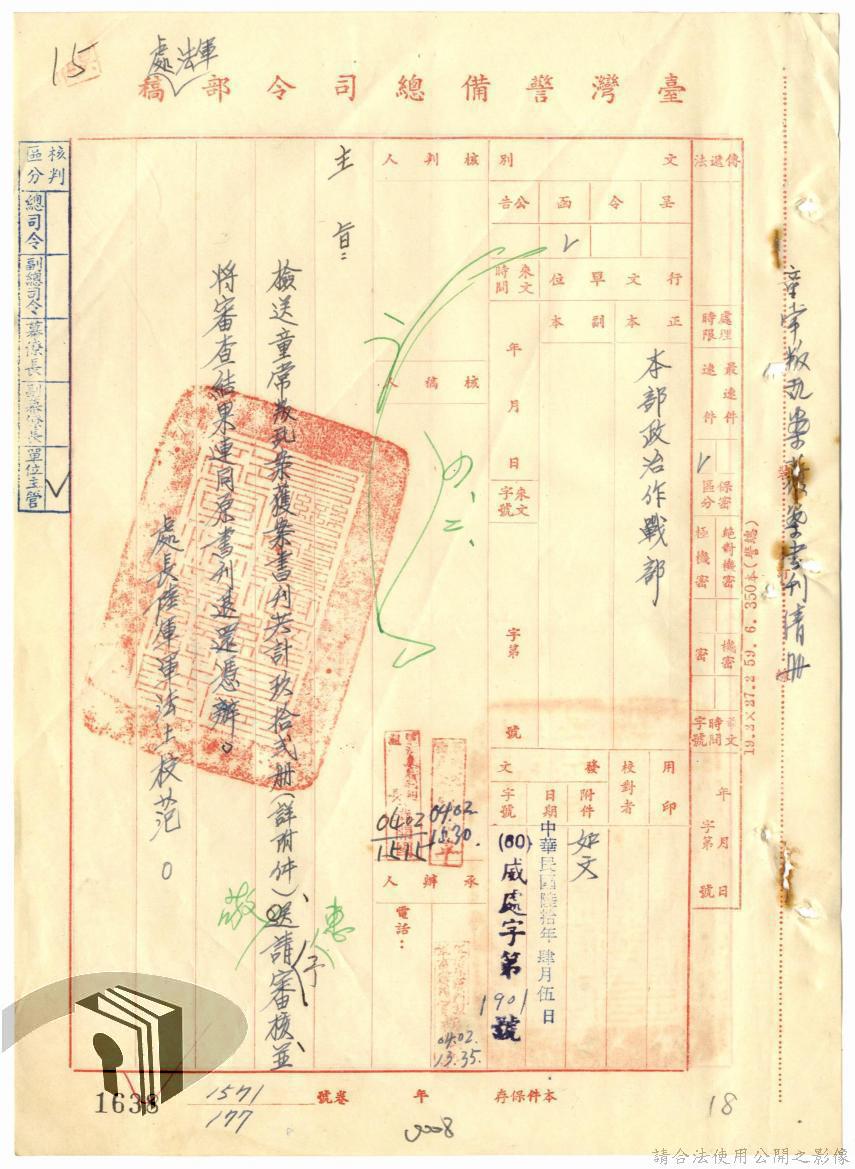 15
處法軍
臺灣警備總司令部稿
童常叛亂案獲案書刊清冊
裝
訂
線
19.2×27.2 59. 6. 350本(警總)
傳遞法
處理時限
最速件
速件
保密區分
絕對機密
極機密
機密
密
收文時間字號
年月日
字第號
文別
呈
令
函
公告
行文單位
正本
副本
本部政治作戰部
來文時間
年月日
來文字號
字第
號
用印
校對者
發文
附件
如文
日期
中華民國陸拾年肆月伍日
字號
(60)威處字第1901號
核判人
核稿人
四、二、
04.02
1830.
04.02
1515
承辦人
電話：
04.02.
13.35.
主旨：
檢送童常叛亂案獲案書刊共計玖拾貳冊(詳附件)、送請審核並
惠
予
敬
將審查結果連同原書刊退還憑辦。
處長陸軍軍法上校范○
核判區分
總司令
副總司令
幕僚長
副幕僚長
單位主管
本件保存
年
卷號
1571
177
1638
18
請合法使用公開之影像